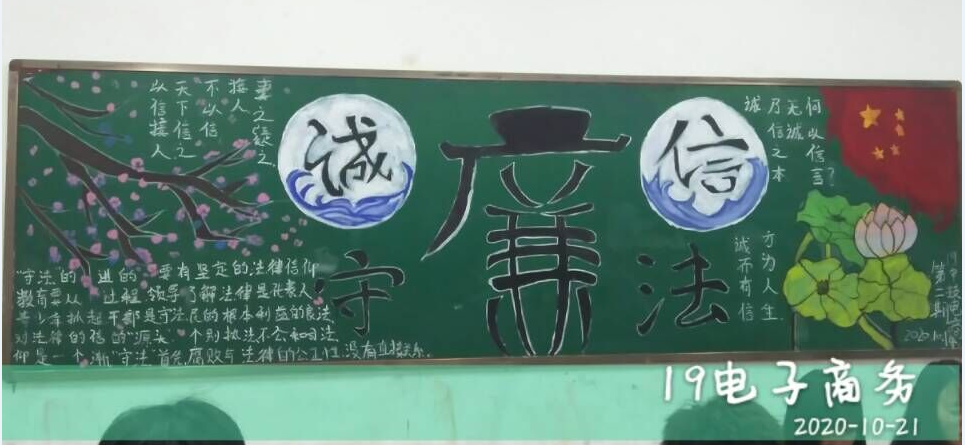 以信接人
天下信之
不以信
接人
妻之疑之
诚
廉
信
守
法
诚
乃信之本
无诚
何以信言?
诚而有信
方为人生
"守法的 进的 要有坚定的法律信仰
教育要从 过程 领导了解法律是代表人
青少年抓起干部是守法民的根本利益的良法
对法律的 的源头 个别执法不公和司法
仰是一个渐 守法首先腐败与法律的公正性没有直接联系.
第二期
2020.10.
19电子商务
2020-10-21